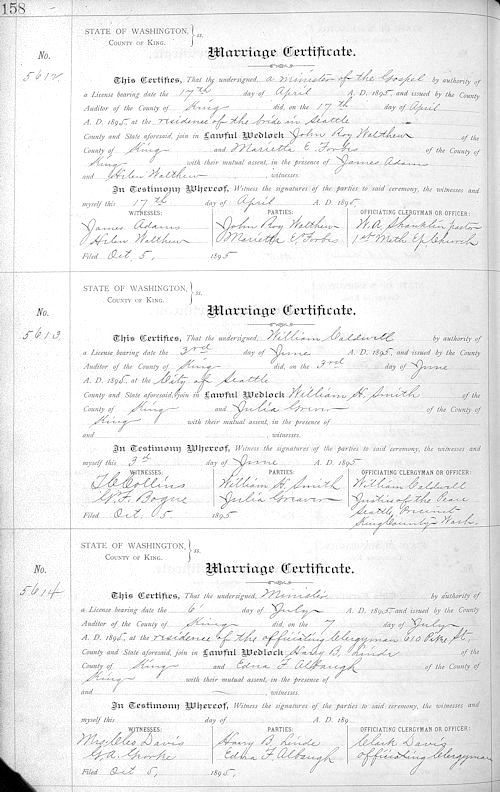 158
STATE OF WASHINGTON,
COUNTY OF KING.
ss.
No.
5612
Marriage Certificate.
This Certifies, That the undersigned, a minister of the Gospel by authority of
a License bearing date the 17th day of April A. D. 1895, and issued by the County
Auditor of the County of King did, on the 17th day of April
A. D. 1895, at the residence of the bride in Seattle
County and State aforesaid, join in Lawful Wedlock John Roy Walthew of the
County of King and Marietta E. Forbs of the County of
King with their mutual assent, in the presence of James Adams
and Helen Walthew, witnesses.
In Testimony Whereof, Witness the signatures of the parties to said ceremony, the witnesses and
myself this 17th day of April A. D. 1895.
WITNESSES: PARTIES: OFFICIATING CLERGYMAN OR OFFICER:
James Adams John Roy Walthew W. A. Shanklin pastor
Helen Walthew Marietta E. Forbs 1st Meth. Ep. Church
Filed Oct. 5, 1895
STATE OF WASHINGTON,
COUNTY OF KING.
ss.
No.
5613
Marriage Certificate.
This Certifies, That the undersigned, William Caldwell by authority of
a License bearing date the 3rd day of June A. D. 1895, and issued by the County
Auditor of the County of King did, on the 3rd day of June
A. D. 1895, at the City of Seattle
County and State aforesaid, join in Lawful Wedlock William H. Smith of the
County of King and Julia of the County of
King with their mutual assent, in the presence of
and witnesses.
In Testimony Whereof, Witness the signatures of the parties to said ceremony, the witnesses and
myself this 3d day of June A. D. 1895
WITNESSES: PARTIES: OFFICIATING CLERGYMAN OR OFFICER:
Collins William H. Smith William Caldwell
Bogue Julia Justice of the Peace
Seattle Precinct
Filed Oct. 5 1895
King County Wash.
STATE OF WASHINGTON,
COUNTY OF KING.
ss.
No.
5614
Marriage Certificate.
This Certifies, That the undersigned, Minister by authority of
a License bearing date the 6 day of July A. D. 1895, and issued by the County
Auditor of the County of King did, on the 7 day of July
A. D. 1895, at the residence of the officiating Clergyman 610 Pike St.
County and State aforesaid, join in Lawful Wedlock Harry B. Linde of the
County of King and Edna F. Albaugh of the County of
King with their mutual assent, in the presence of
and witnesses.
In Testimony Whereof, Witness the signatures of the parties to said ceremony, the witnesses and
myself this day of A. D. 189
WITNESSES: PARTIES: OFFICIATING CLERGYMAN OR OFFICER:
Mrs. Cleo Davis Harry B. Linde Clark Davis
G. A. Edna F. Albaugh officiating Clergyman
Filed Oct 5, 1895.